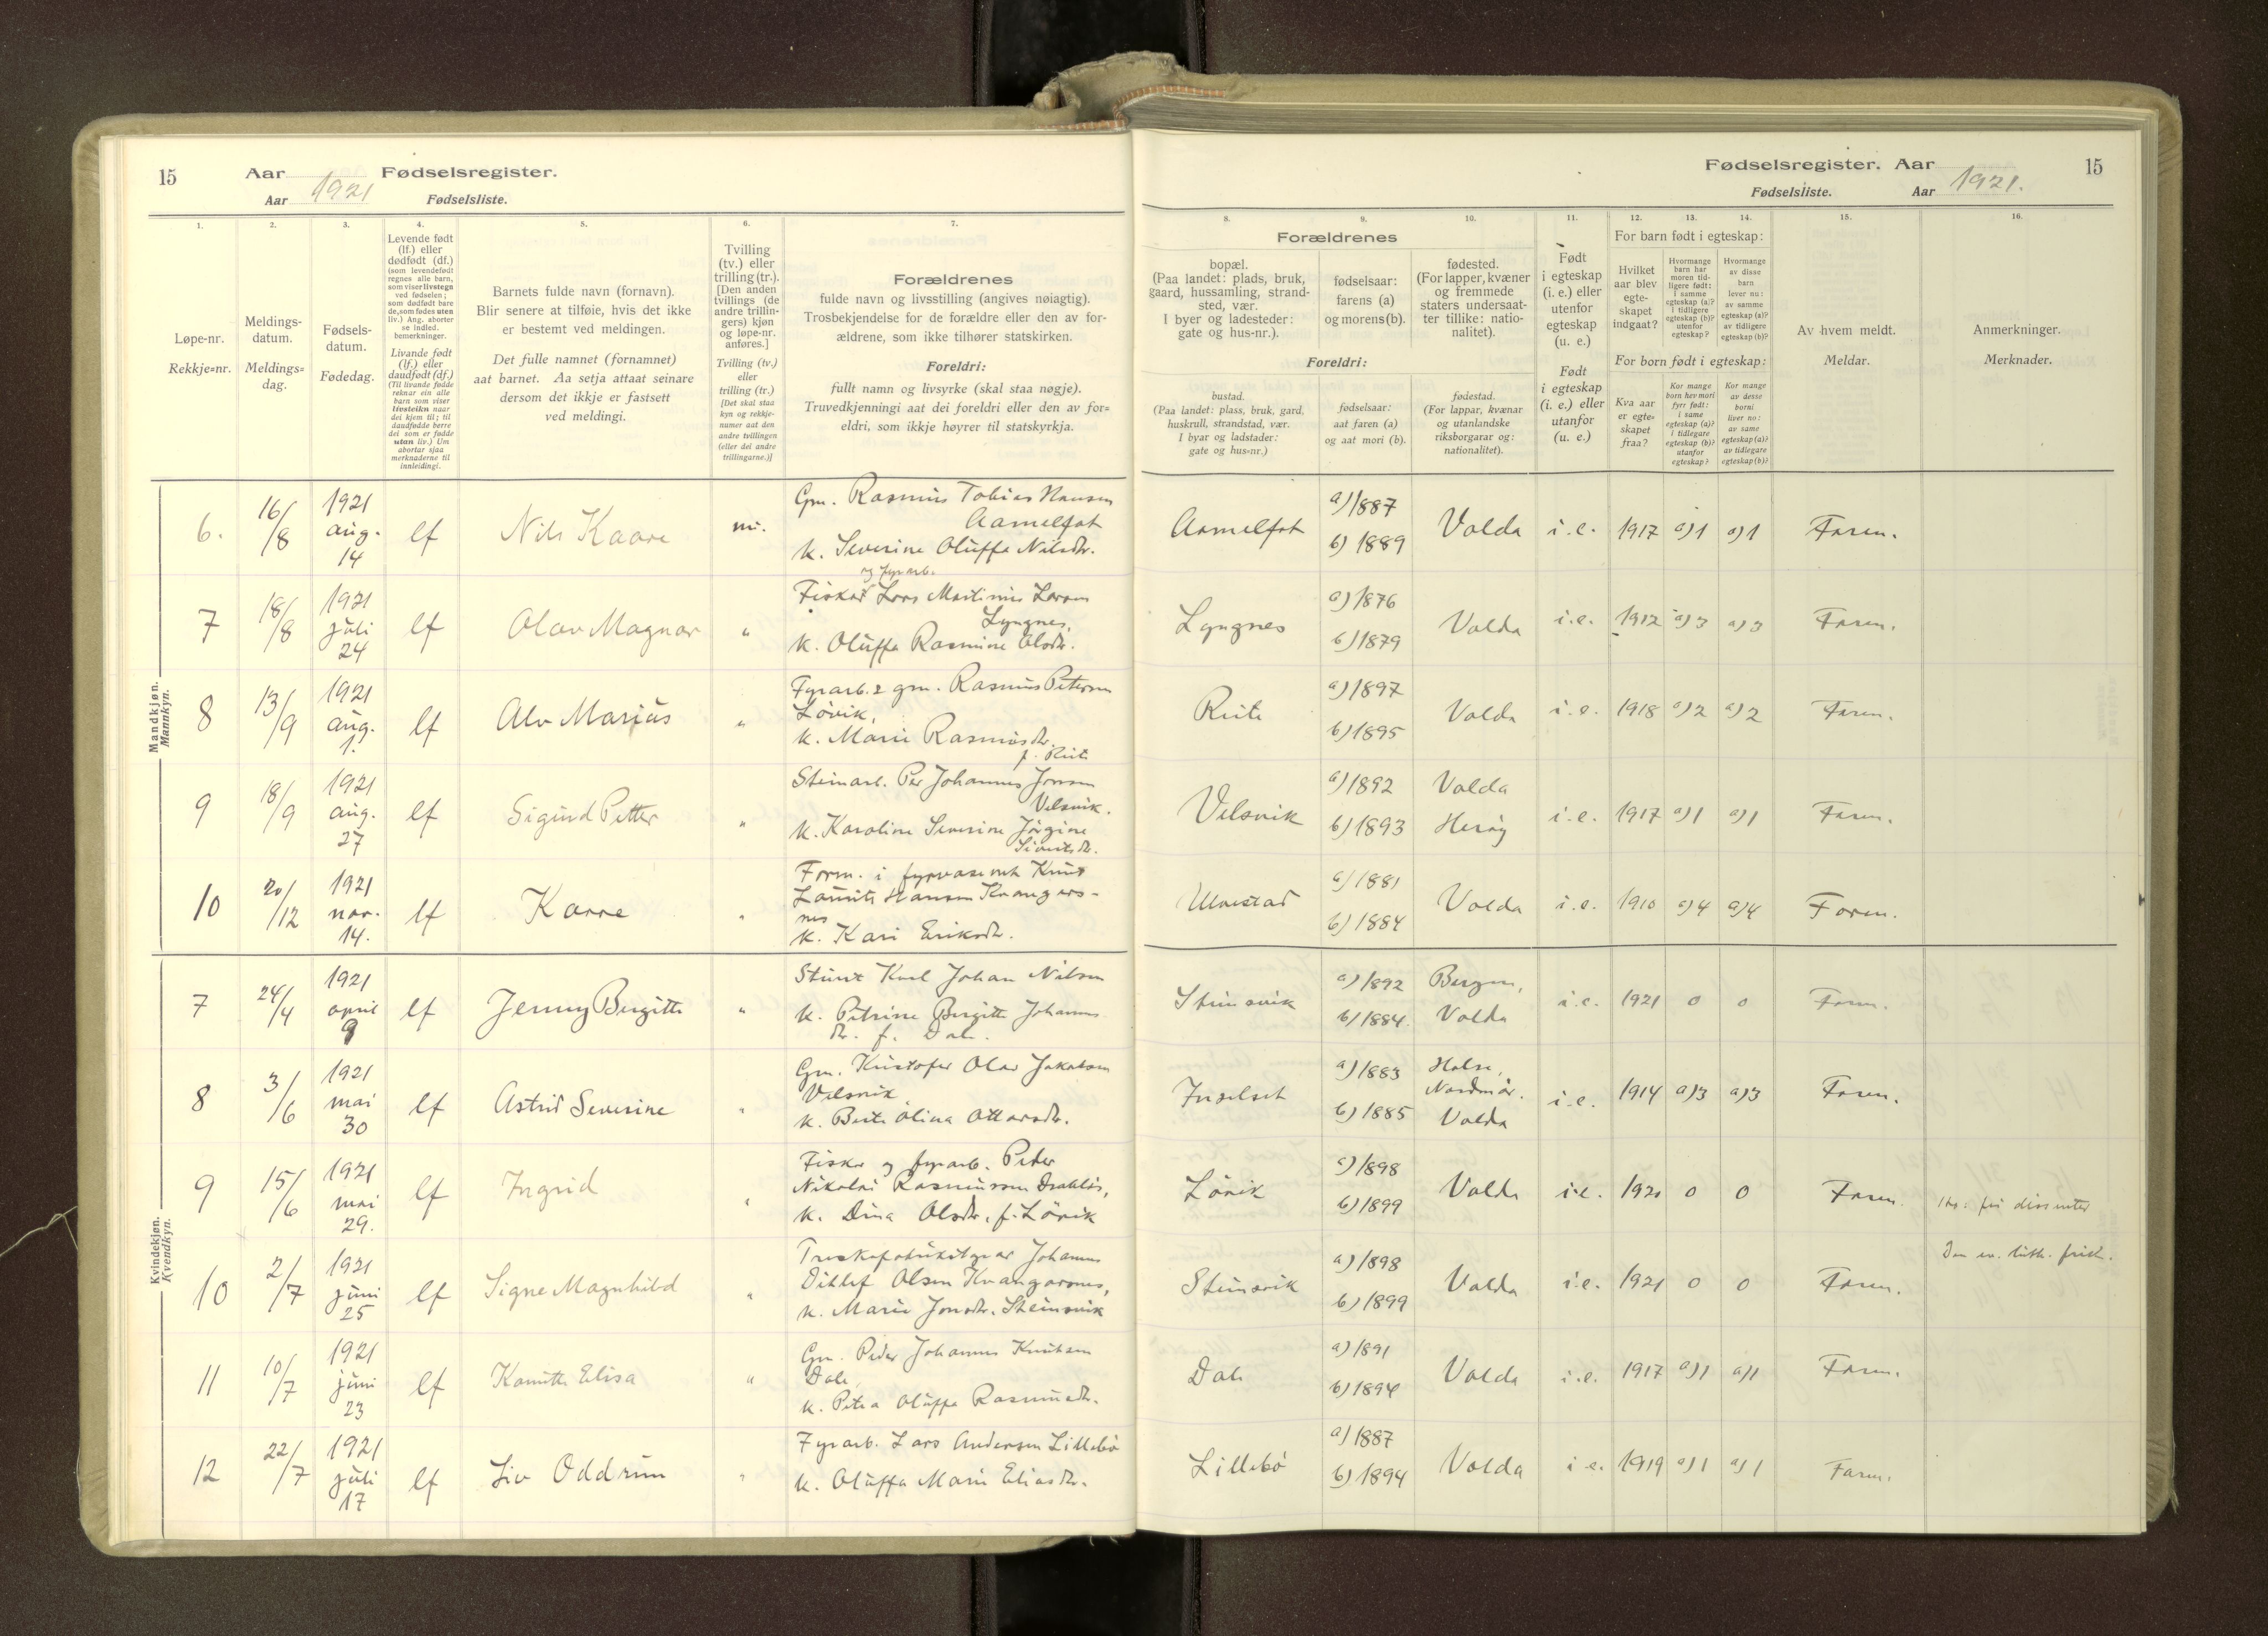 15 Aar 1921 Fødselsregister.
Aar Fødselsliste.
Fødselsregister. Aar 1921. 15
Fødselsliste. Aar
1. 2. 3. 4. 5. 6. 7.
Løpe-nr.
Rekkje=nr.
Meldings-
datum.
Meldings=
dag.
Fødsels-
datum.
Fødedag.
Levende født
(lf.) eller
dødfødt (df.)
(som levendefødt
regnes alle barn,
som viser livstegn
ved fødselen;
som dødfødt bare
de, som fødes uten
liv.) Ang. aborter
se indled.
bemerkninger.
Livande født
(lf.) eller
daudfødt (df.)
(Til livande fødde
reknar ein alle
barn som viser
livsteikn naar
dei kjem til; til
daudfødde berre
dei som er fødde
utan liv.) Um
abortar sjaa
merknaderne til
innleidingi.
Barnets fulde navn (fornavn).
Blir senere at tilføie, hvis det ikke
er bestemt ved meldingen.
Det fulle namnet (fornamnet)
aat barnet. Aa setja attaat seinare
dersom det ikkje er fastsett
ved meldingi.
Tvilling
(tv.) eller
trilling (tr.).
[Den anden
tvillings (de
andre trillin-
gers) kjøn
og løpe-nr.
anføres.]
Tvilling (tv.)
eller
trilling (tr.)
[Det skal staa
kyn og rekkje-
numer aat den
andre tvillingen
(eller dei andre
trillingarne.)]
Forældrenes
fulde navn og livsstilling (angives nøiagtig).
Trosbekjendelse for de forældre eller den av for-
ældrene, som ikke tilhører statskirken.
Foreldri:
fullt namn og livsyrke (skal staa nøgje).
Truvedkjenningi aat dei foreldri eller den av for=
eldri, som ikkje høyrer til statskyrkja.
8. 9. 10. 11. 12. 13. 14. 15. 16.
Forældrenes
bopæl.
(Paa landet: plads, bruk,
gaard, hussamling, strand-
sted, vær.
I byer og ladesteder:
gate og hus-nr.).
fødselsaar:
farens (a)
og morens (b).
fødested.
(For lapper, kvæner
og fremmede
staters undersaat-
ter tillike: natio-
nalitet).
Foreldri:
bustad.
(Paa landet: plass, bruk, gard,
huskrull, strandstad, vær.
I byar og ladstader:
gate og hus=nr.)
fødselsaar:
aat faren (a)
og aat mori (b).
fødestad.
(For lappar, kvænar
og utanlandske
riksborgarar og:
nationalitet).
Født
i egteskap
(i. e.) eller
utenfor
egteskap
(u. e.)
Født
i egteskap
(i. e.) eller
utanfor
(u. e.)
For barn født i egteskap:
Hvilket
aar blev
egte-
skapet
indgaat?
Hvormange
barn har
moren tid-
ligere født:
i samme
egteskap (a)?
i tidligere
egteskap (b)?
utenfor
egteskap?
Hvormange
av disse
barn
lever nu:
av samme
egteskap (a)?
av tidligere
egteskap (b)?
For born født i egteskap:
Kva aar
er egte=
skapet
fraa?
Kor mange
born hev mori
fyrr født:
i same
egteskap (a)?
i tidlegare
egteskap (b)?
utanfor
egteskap?
Kor mange
av desse
borni
liver no:
av same
egteskap (a)?
av tidlegare
egteskap (b)?
Av hvem meldt.
Meldar.
Anmerkninger.
Merknader.
Mandkjøn.
Mannkyn.
6. 16/8 1921 aug. 14 lf Nils Kaare
Gm. Rasmus Tobias Hansen
Aamelfot
k. Severine Oluffa Nilsdtr.
Aamelfot a) 1887 b) 1889 Volda i.e. 1917 a) 1 a) 1 Faren.
7 18/8 1921 juli 24 lf Olav Magnar "
og fyrarb.
Fisker Lars Martinus Larsen
Lyngnes,
k. Oluffa Rasmine Olsdtr.
Lyngnes a) 1876 b) 1879 Volda i.e. 1912 a) 3 a) 3 Faren.
8 13/9 1921 aug. 1. lf Alv Marius "
Fyrarb. & gm. Rasmus Petersen
Løvik,
k. Marie Rasmusdtr.
f. Riite
a) 1897 b) 1895 Volda i.e. 1918 a) 2 a) 2 Faren.
9 18/9 1921 aug. 27 lf Sigurd Petter "
Steinarb. Per Johannes Jonsen
Velsvik.
k. Karoline Severine Jørgine
Sivertsdtr.
Velsvik a) 1892 b) 1893 Volda Herøy i.e. 1917 a) 1 a) 1 Faren.
10 20/12 1921 nov. 14. lf Kaare "
Form. i fyrvæsenet Knut
Laurits Hansen Kvangers-
nes
k. Kari Eriksdtr.
Ulvestad a) 1881 b) 1884 Volda i.e. 1910 a) 4 a) 4 Faren.
Kvindekjøn.
Kvendkyn.
7 24/4 1921 april 9 lf Jenny Birgitte "
Karl Johan Nilsen
k. Petrine Birgitte Johannes
dtr. f. Dale.
Steinsvik a) 1892 b) 1884. Bergen, Volda i.e. 1921 0 0 Faren.
8 3/6 1921 mai 30 lf Astrid Severine "
Gm. Kristofer Olav Jakobsen
Velsvik,
k. Berte Olina Ottarsdtr.
Inselset a) 1883 b) 1885 Halse, Nordmør. Volda i.e. 1914 a) 3 a) 3 Faren.
9 15/6 1921 mai 29. lf Ingrid "
Fisker og fyrarb. Peder
Nikolai Rasmussen Drabløs,
k. Dina Olsdtr. f. Løvik
Løvik a) 1898 b) 1899 Volda i.e. 1920 0 0 Faren.
10 2/7 1921 juni 25 lf Signe Magnhild "
Johannes
Ditlef Olsen Kvangarsnes,
k. Marie Jonsdtr. Steinsvik
Steinsvik a) 1898 b) 1899 Volda i.e. 1921 0 0 Faren.
Den ev. luth. frik.
11 10/7 1921 juni 23 lf Kamitte Elisa "
Gm. Peder Johannes Knutsen
Dale,
k. Petra Oluffa Rasmusdtr.
Dale a) 1891 b) 1894 Volda i.e. 1917 a) 1 a) 1 Faren.
12 22/7 1921 juli 17 lf Liv Oddrun "
Fyrarb. Lars Andersen Lillebø
k. Oluffa Marie Eliasdtr.
Lillebø a) 1887 b) 1894 Volda i.e. 1919 a) 1 a) 1 Faren.